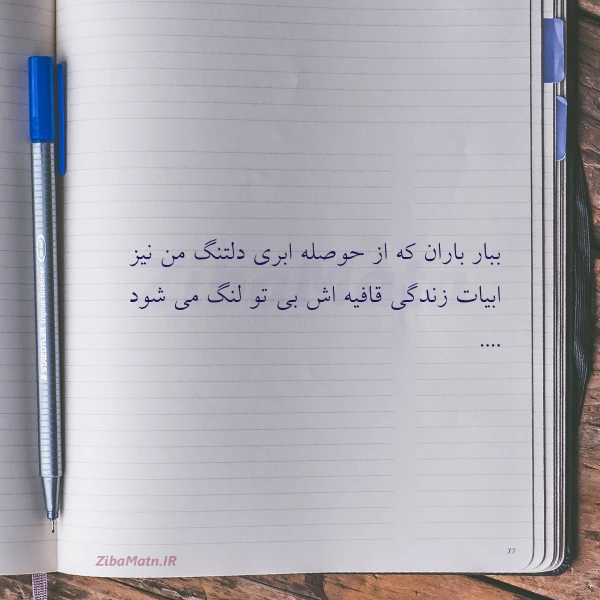 ببار باران که از حوصله ابری دلتنگ من نیز
ابیات زندگی قافیه اش بی تو لنگ می شود
....
77
ZibaMatn.IR